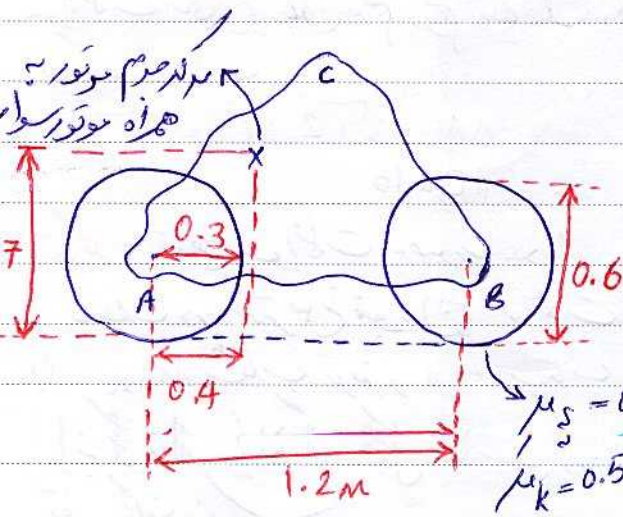 مرکز جرم موتور به
همراه موتورسوار
C
x
7
0.3
A
B
0.6
0.4
1.2m
μs = 0
μk = 0.5